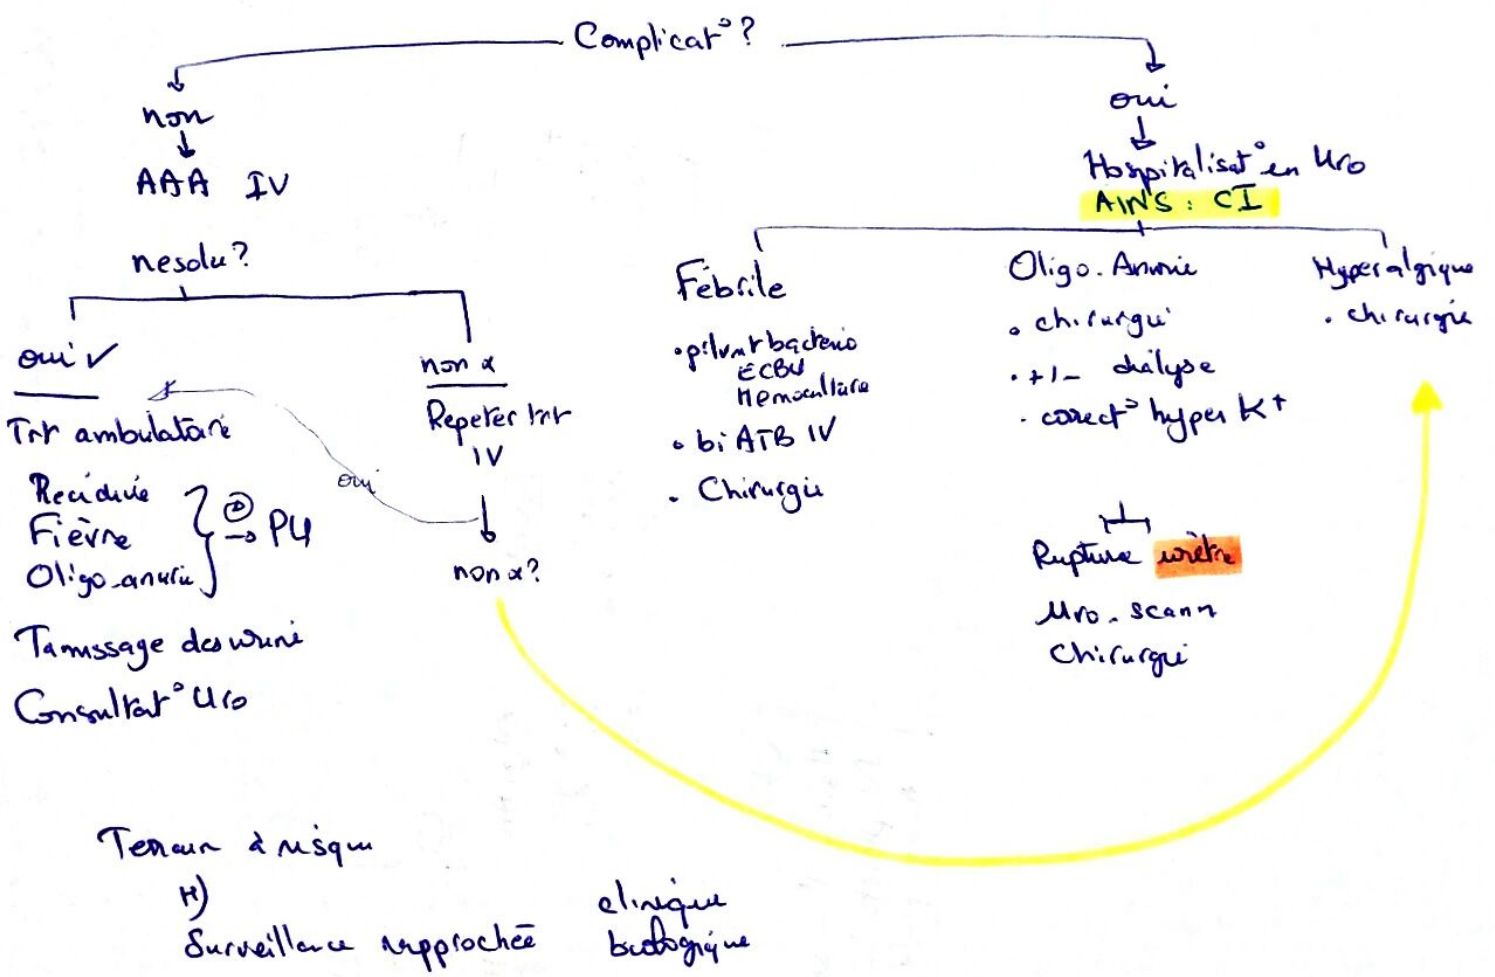 Complicat° ?
non
AAA IV
resolu ?
oui ✓
Trt ambulatoire
Recidive
Fièvre
Oligo-anurie
→ PU
Tamissage des urine
Consultat° Uro
non x
Repeter trt
IV
oui
non x ?
oui
Hospitalisat° en Uro
AINS : CI
Fébrile
• prlvmt bacterio
ECBU
Hemoculture
• bi ATB IV
• Chirurgie
Oligo-Anurie
• chirurgie
• +/- dialyse
• corect° hyper K+
Hyperalgique
• chirurgie
Rupture urètre
Uro-scann
Chirurgie
Terrain à risque
H)
Surveillance rapprochée
clinique
biologique